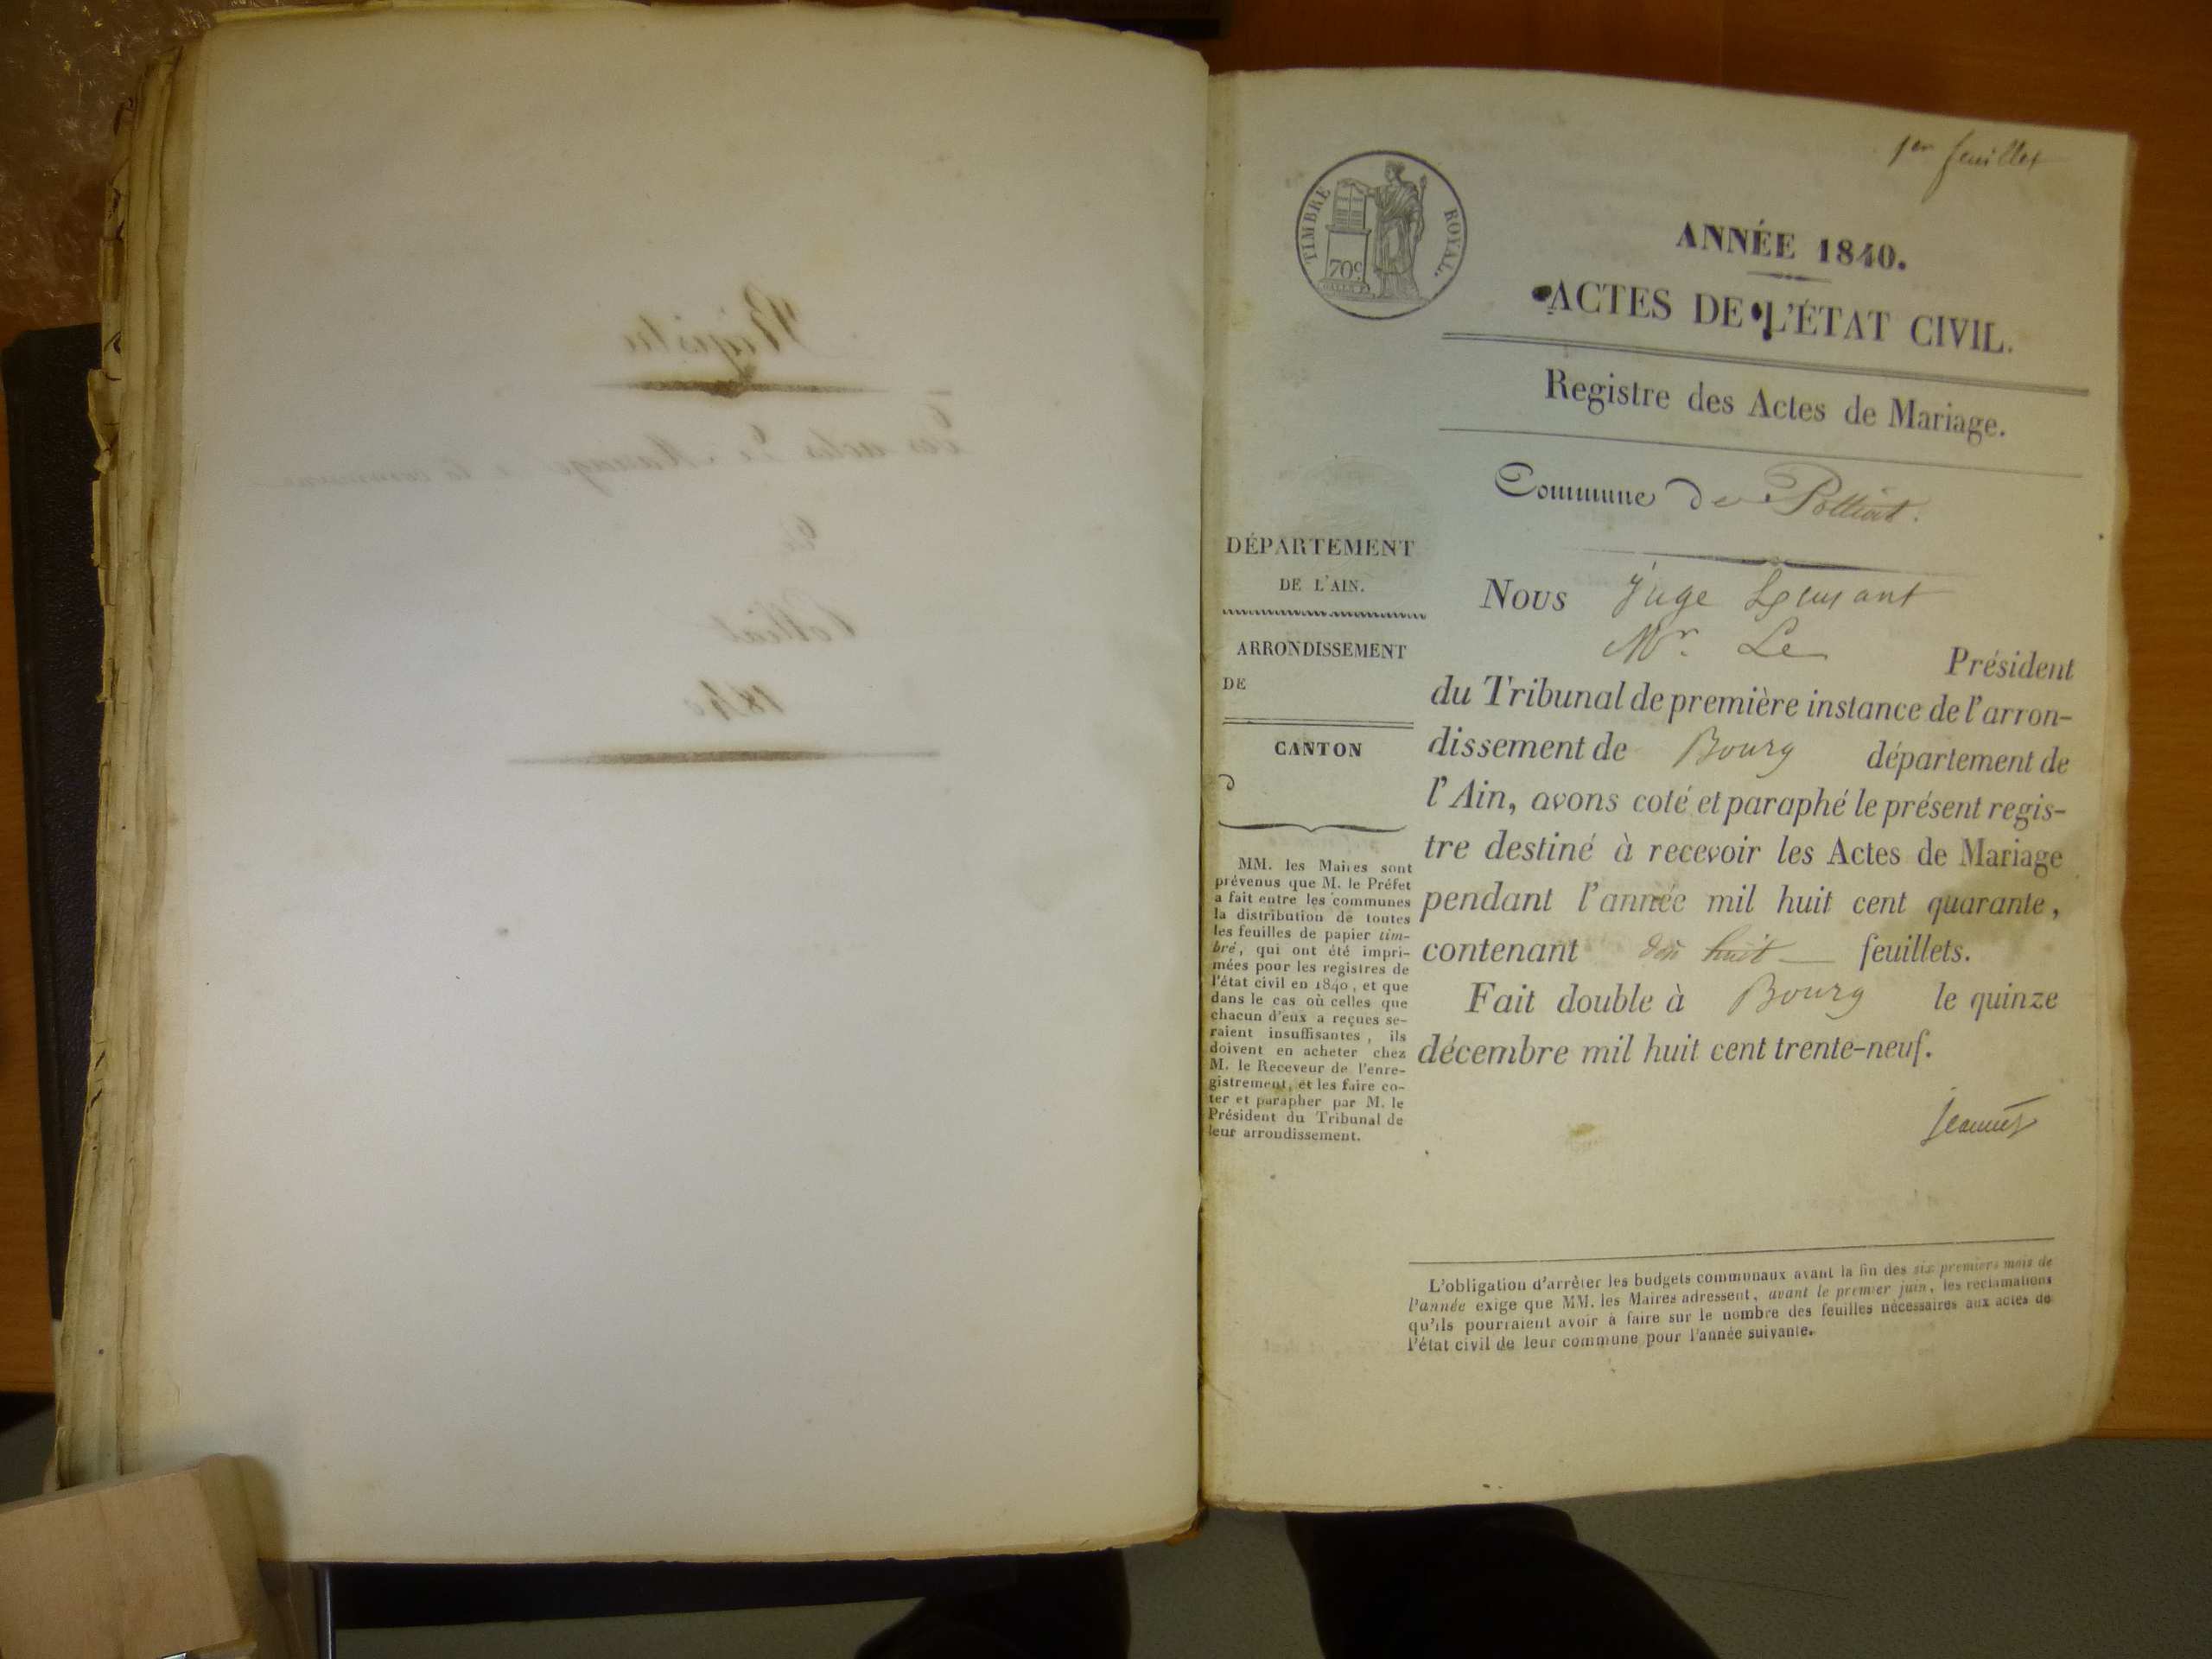 Registre
des actes de Mariage de la commune
de
Polliat
1840
1er feuillet
TIMBRE ROYAL.
70c
ANNÉE 1840.
ACTES DE L'ÉTAT CIVIL.
Registre des Actes de Mariage.
Commune de Polliat.
DÉPARTEMENT
DE L'AIN.
ARRONDISSEMENT
DE
CANTON
MM. les Maires sont
prévenus que M. le Préfet
a fait entre les communes
la distribution de toutes
les feuilles de papier tim-
bré, qui ont été impri-
mées pour les registres de
l'état civil en 1840, et que
dans le cas où celles que
chacun d'eux a reçues se-
raient insuffisantes, ils
doivent en acheter chez
M. le Receveur de l'enre-
gistrement, et les faire co-
ter et parapher par M. le
Président du Tribunal de
leur arrondissement.
Nous Juge
Mr. Le Président
du Tribunal de première instance de l'arron-
dissement de Bourg département de
l'Ain, avons coté et paraphé le présent regis-
tre destiné à recevoir les Actes de Mariage
pendant l'année mil huit cent quarante,
contenant dix huit feuillets.
Fait double à Bourg le quinze
décembre mil huit cent trente-neuf.
L'obligation d'arrêter les budgets communaux avant la fin des six premiers mois de
l'année exige que MM. les Maires adressent, avant le premier juin, les réclamations
qu'ils pourraient avoir à faire sur le nombre des feuilles nécessaires aux actes de
l'état civil de leur commune pour l'année suivante.